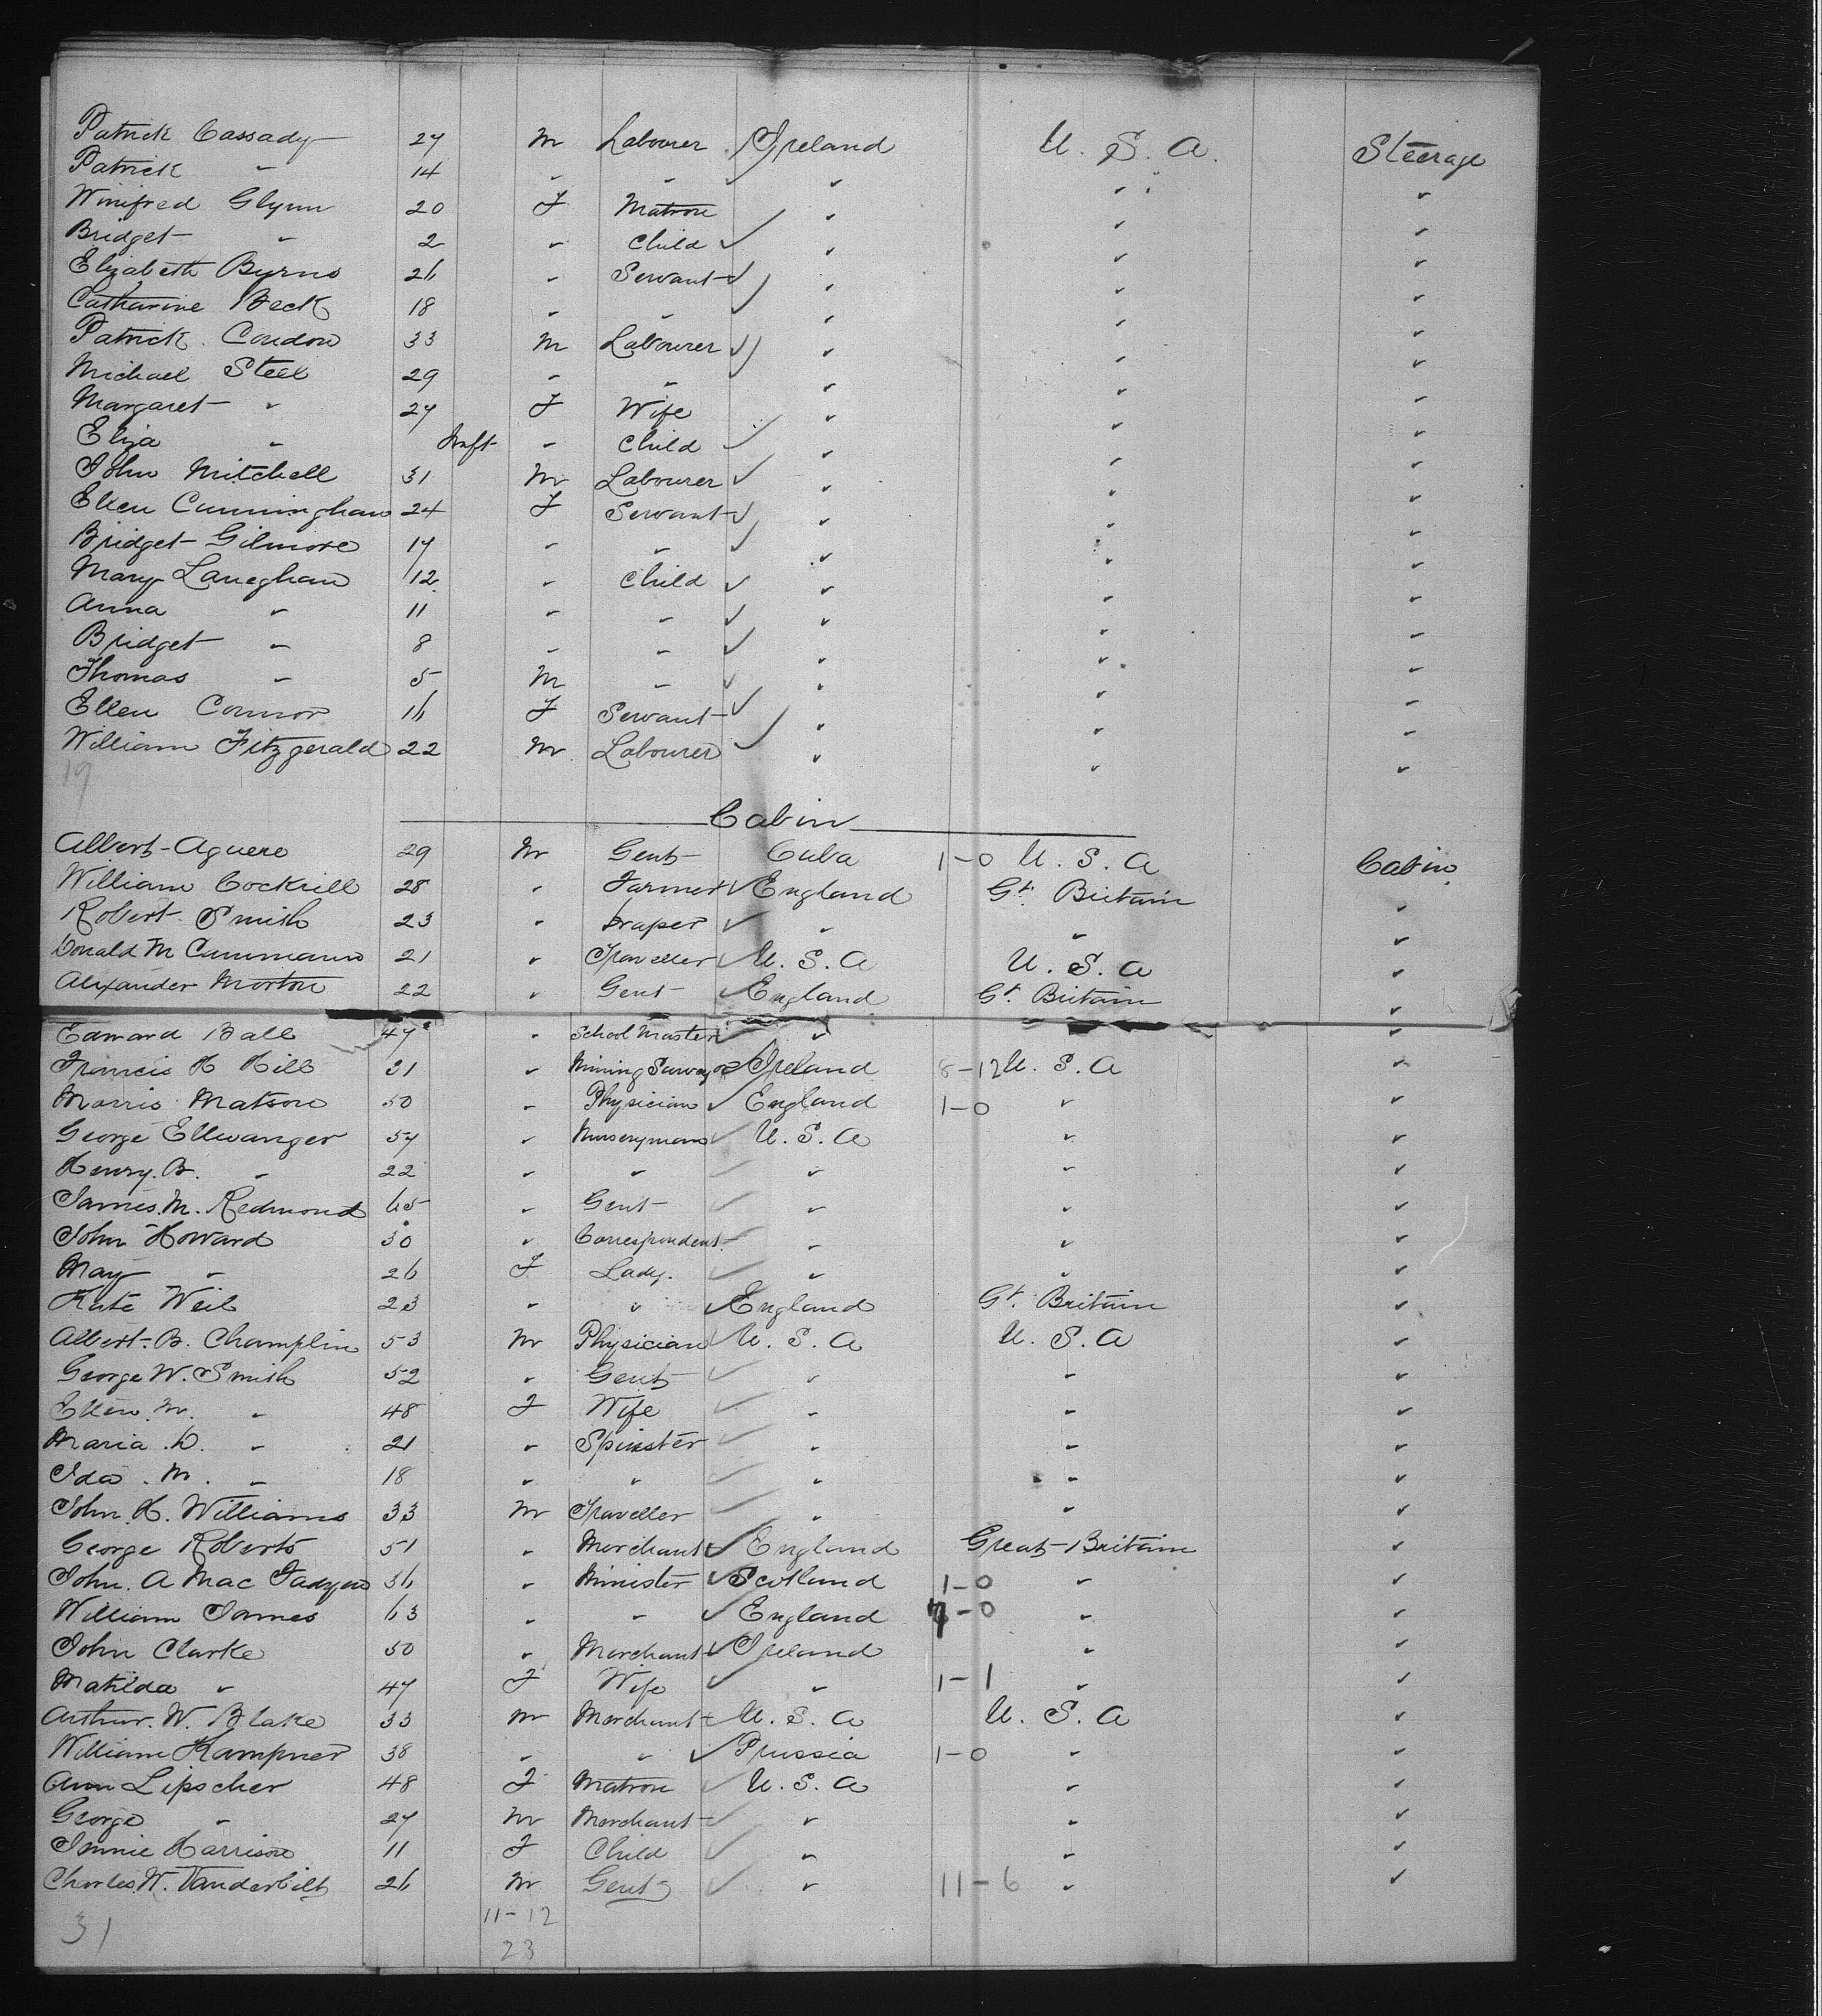 Patrick Cassady 27 M Labourer Ireland U.S.A. Steerage
Patrick " 14 " " " " "
Winifred Glynn 20 F Matron " " "
Bridget " 2 " Child " " "
Elizabeth Byrns 26 " Servant " " "
Catharine Beck 18 " " " " "
Patrick Condon 33 M Labourer " " "
Michael Steel 29 " " " " "
Margaret " 27 F Wife " " "
Eliza " Inft " Child " " "
John Mitchell 31 M Labourer " " "
Ellen Cunningham 24 F Servant " " "
Bridget Gilmore 17 " " " " "
Mary Laneghan 12 " Child " " "
Anna " 11 " " " " "
Bridget " 8 " " " " "
Thomas " 5 M " " " "
Ellen Connor 16 F Servant " " "
William Fitzgerald 22 M Labourer " " "
19
Cabin
Albert Aguero 29 M Gent Cuba 1-0 U.S.A Cabin
William Cockrill 28 " Farmer England Gt. Britain "
Robert Smith 23 " Draper " " "
Donald M Cammann 21 " Traveller U.S.A U.S.A "
Alexander Morton 22 " Gent England Gt. Britain "
Edward Ball 47 " School Master " "
Francis H Hill 21 " Mining Surveyor Ireland 8-12 U.S.A "
Morris Matson 50 " Physician England 1-0 " "
George Ellwanger 57 " Nurseryman U.S.A " "
Henry. B. " 22 " " " " "
James. M. Redmond 65 " Gent " " "
John Howard 30 " Correspondent " " "
May " 26 F Lady. " " "
Kate Weil 23 " " England Gt. Britain "
Albert. B. Champlin 53 M Physician U.S.A U.S.A "
George W. Smith 52 " Gent " " "
Ellen. M. " 48 F Wife " " "
Maria. D. " 21 " Spinster " " "
Ida. M. " 18 " " " " "
John. H. Williams 33 M Traveller " " "
George Roberts 51 " Merchant England Great Britain "
John. A Mac Fadyen 36 " Minister Scotland 1-0 " "
William James 63 " " England -0 " "
John Clarke 50 " Merchant Ireland " "
Matilda " 47 F Wife " 1-1 " "
Arthur. W. Blake 33 M Merchant U.S.A U.S.A "
William Kampner 38 " " Prussia 1-0 " "
Ann Lipscher 48 F Matron U.S.A " "
George " 27 M Merchant " " "
Harrison 11 F Child " " "
Charles W. Vanderbilt 26 M Gent " 11-6 " "
11-12
31 23